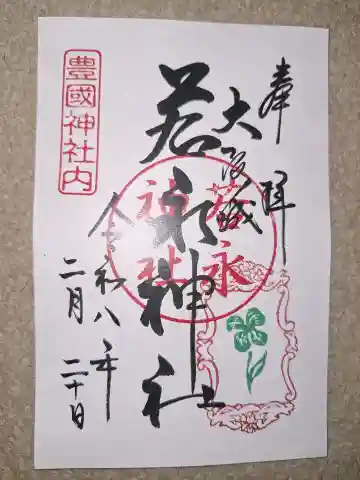 奉拝
大阪城
若永神社
若永
神社
豊國神社内
令和八年
二月二十日